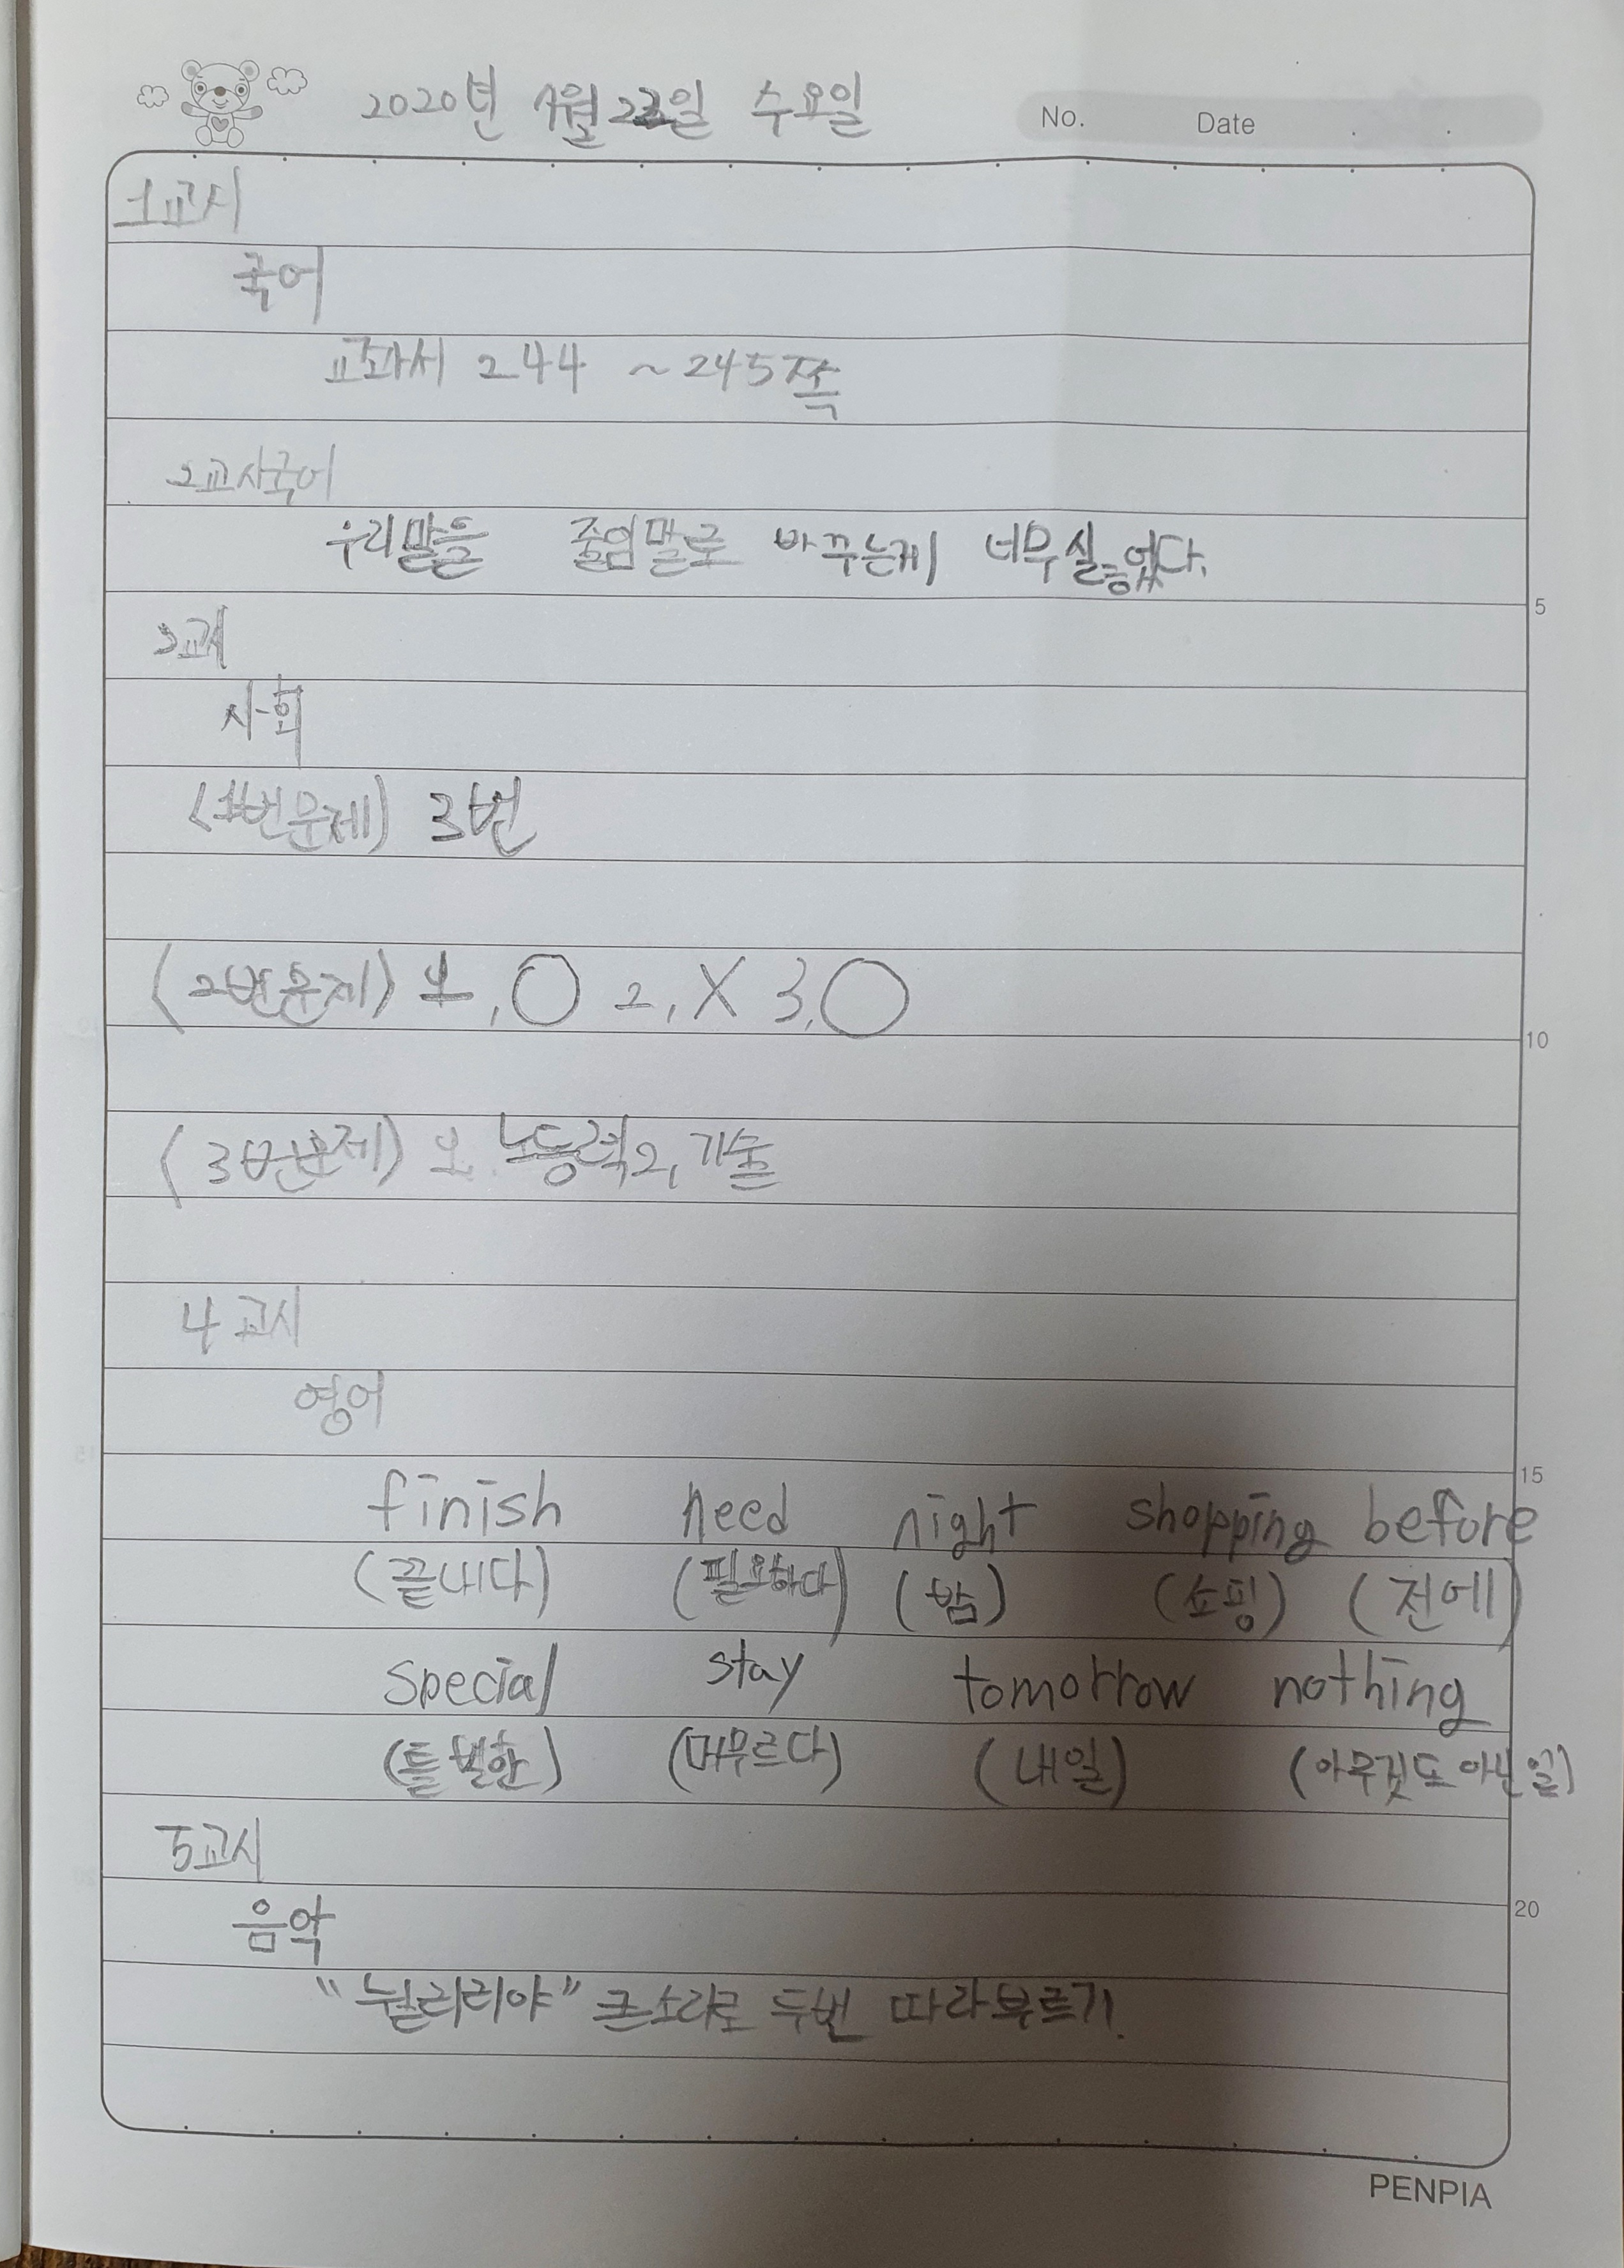 2020년 1월 22일 수요일
No. Date
1교시
국어
교과서 244 ~ 245쪽
2교시국어
우리말을 줄임말로 바꾸는게 너무실
3교시
사회
(1번문제) 3번
(2번문제) 1, O 2, X 3, O
5
10
(3번문제) 1, 노동력 2, 기술
4교시
영어
15
finish need night shopping before
(끝내다) (필요하다) (밤) (쇼핑) (전에)
special stay tomorrow nothing
(특별한) (머무르다) (내일) (아무것도 아닌 일)
5교시
20
음악
"늴리리야" 큰소리로 두번 따라부르기.
PENPIA